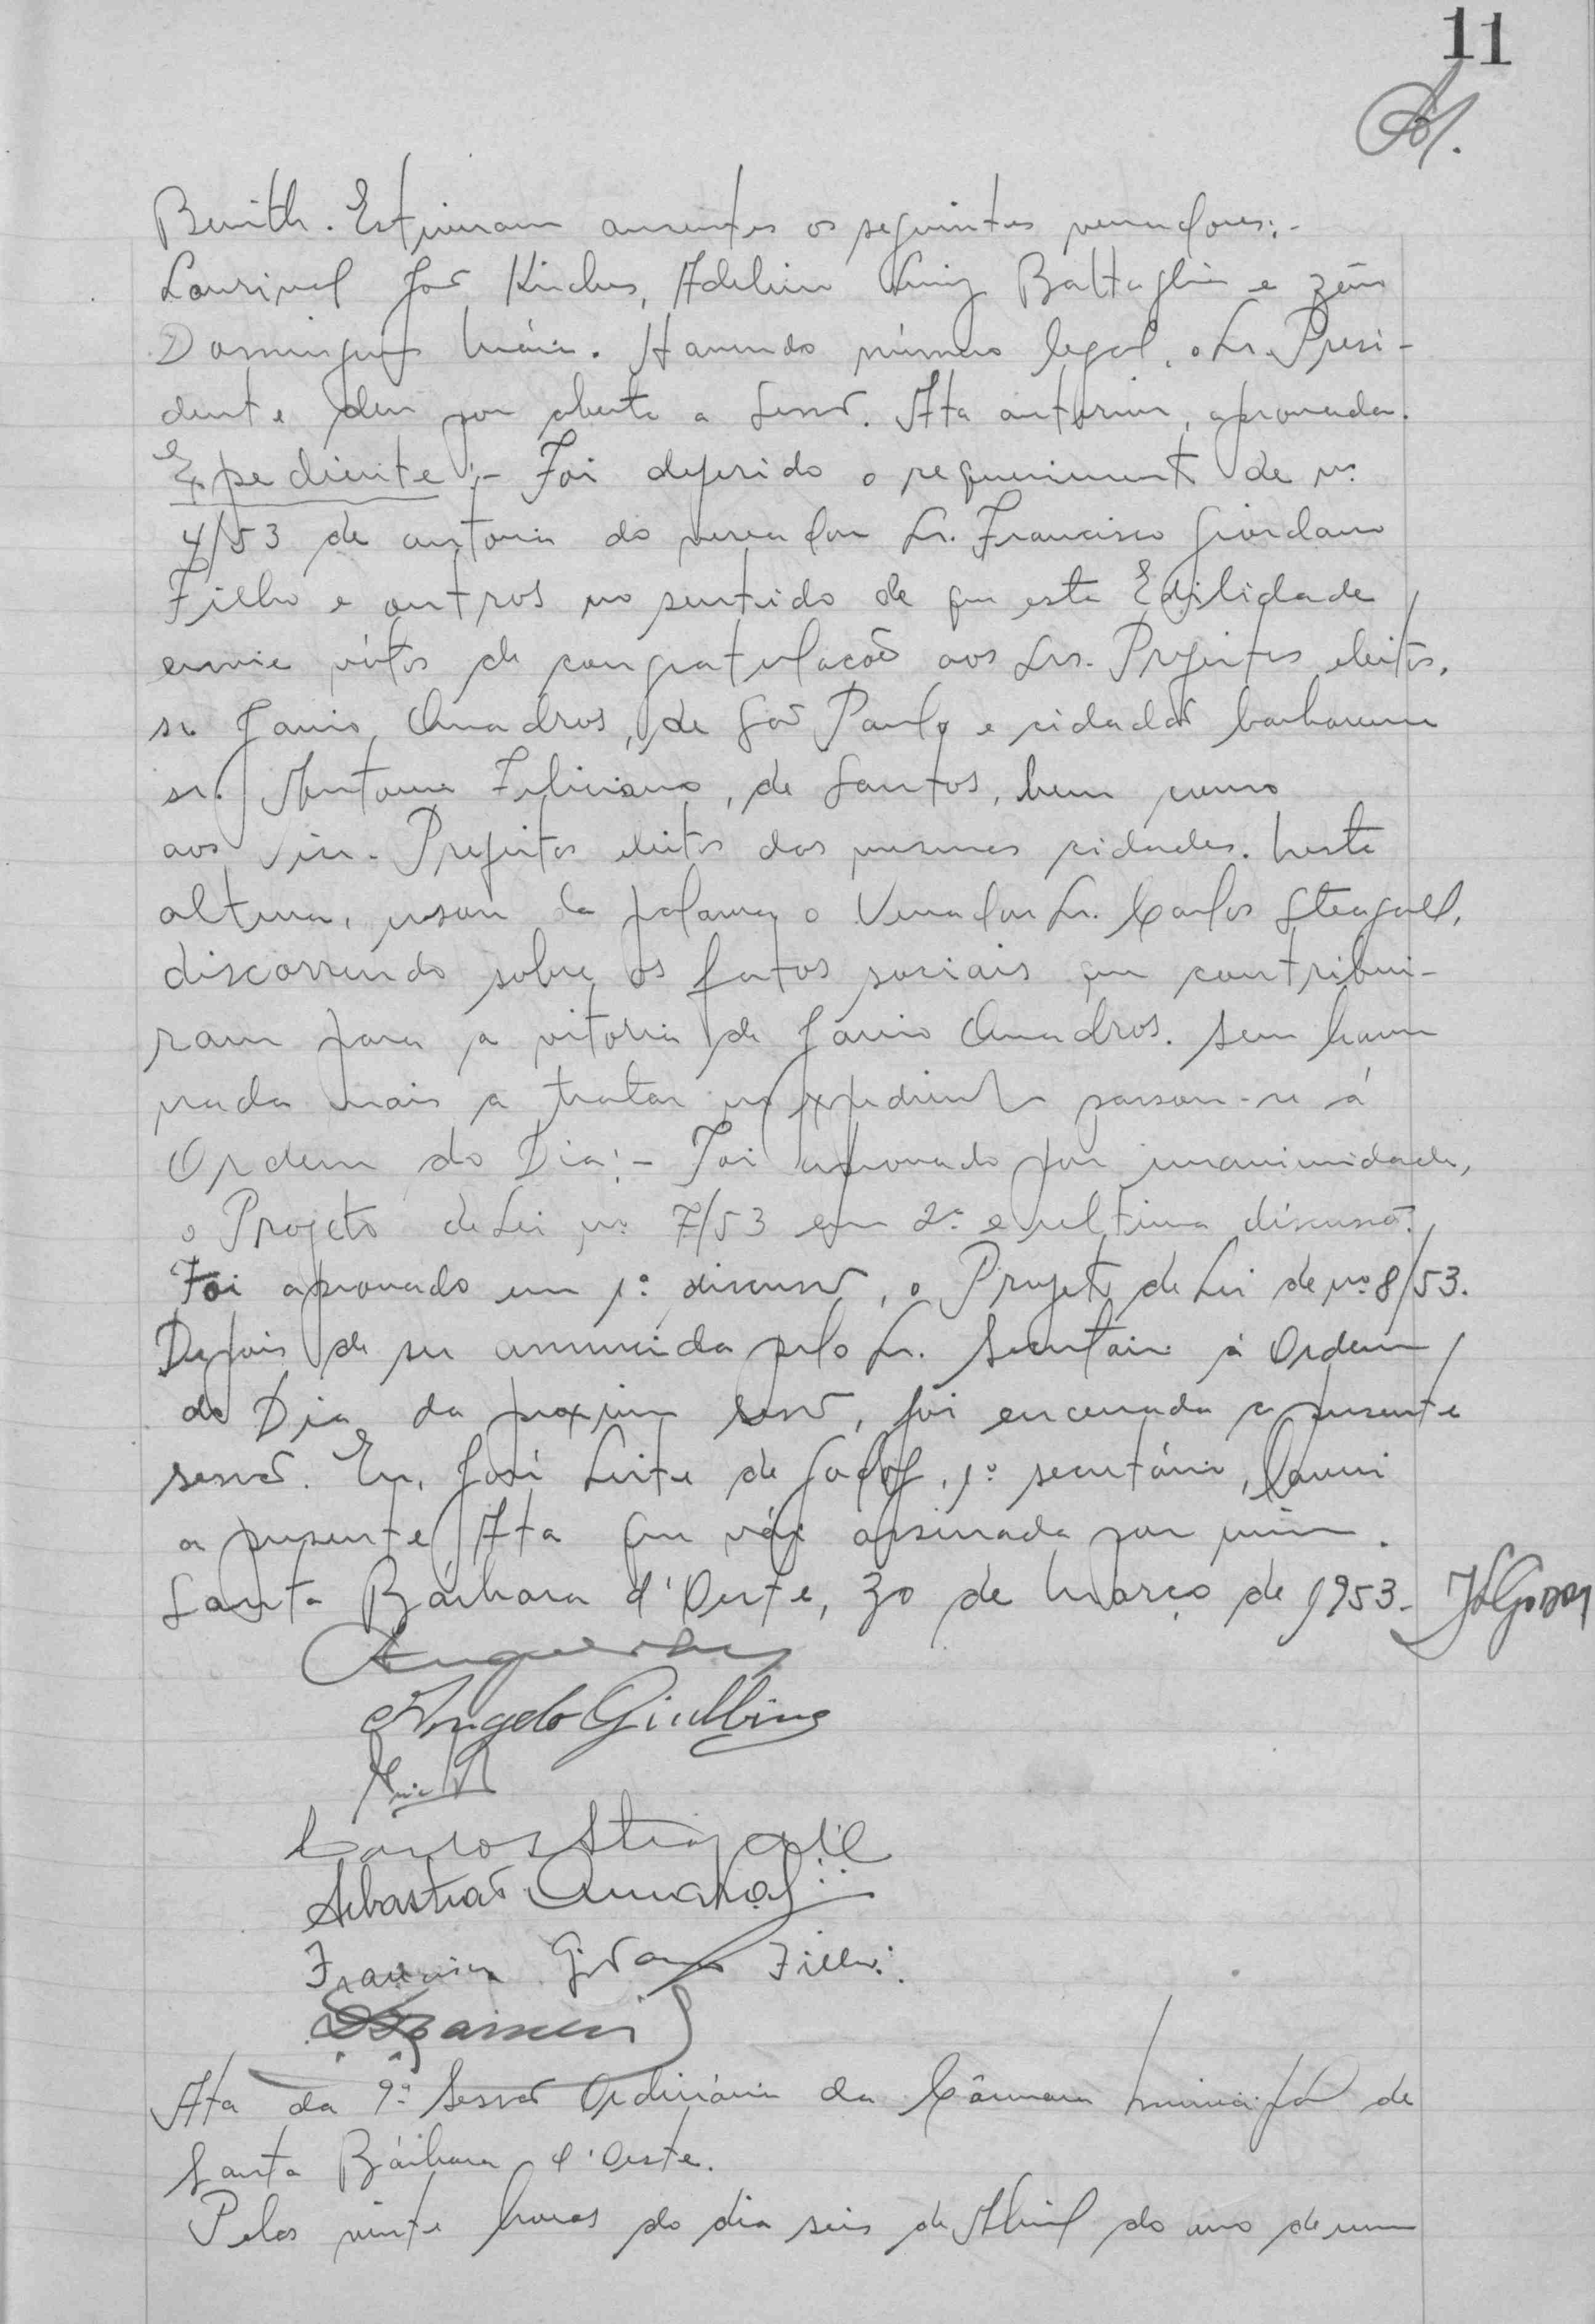 11
Estiveram ausentes os seguintes vereadores:-
Lourival José Kirches, Adelino Luiz Battaglia e Zéno
Domingues Máia. Havendo número legal, o Sr. Presi-
dente deu por aberta a Sessão. Ata anterior, aprovada.
Expediente:- Foi deferido o requerimento de nº
4/53 de autoria do vereador Sr. Francisco Giordano
Filho e outros no sentido de que esta Edilidade
envie vótos de congratulacão aos Srs. Prefeitos eleitos,
sr. Janio Quadros, de São Paulo e cidadão barbarense
sr. Antonio Feliciano, de Santos, bem como
aos Vice-Prefeitos eleitos das mesmas cidades. Nesta
altura, usou da palavra o Vereador Sr. Carlos Steagall,
discorrendo sobre os fatos sociais que contribui-
ram para a vitoria de Janio Quadros. Sem haver
nada mais a tratar no expediente passou-se á
Ordem do Dia:- Foi aprovado por unanimidade,
o Projeto de Lei nº 7/53 em 2ª e ultima discussão.
Foi aprovado em 1ª discussão, o Projeto de Lei de nº 8/53.
Depois de ser anunciada pelo Sr. Secretario á Ordem
do Dia da proxima sessão, foi encerrada a presente
sessão. Eu, José Leite de Godoy, 1º secretário, lavrei
a presente Ata que vái assinada por mim.
Santa Bárbara d'Oeste, 30 de Março de 1953. JLGodoy
Angelo Giubbina
Carlos Steagall
Sebastião Amaral
Francisco Giordano Filho
Ata da 9ª Sessão Ordinária da Câmara Municipal de
Santa Bárbara d'Oeste.
Pelas vinte horas do dia seis de Abril do ano de um